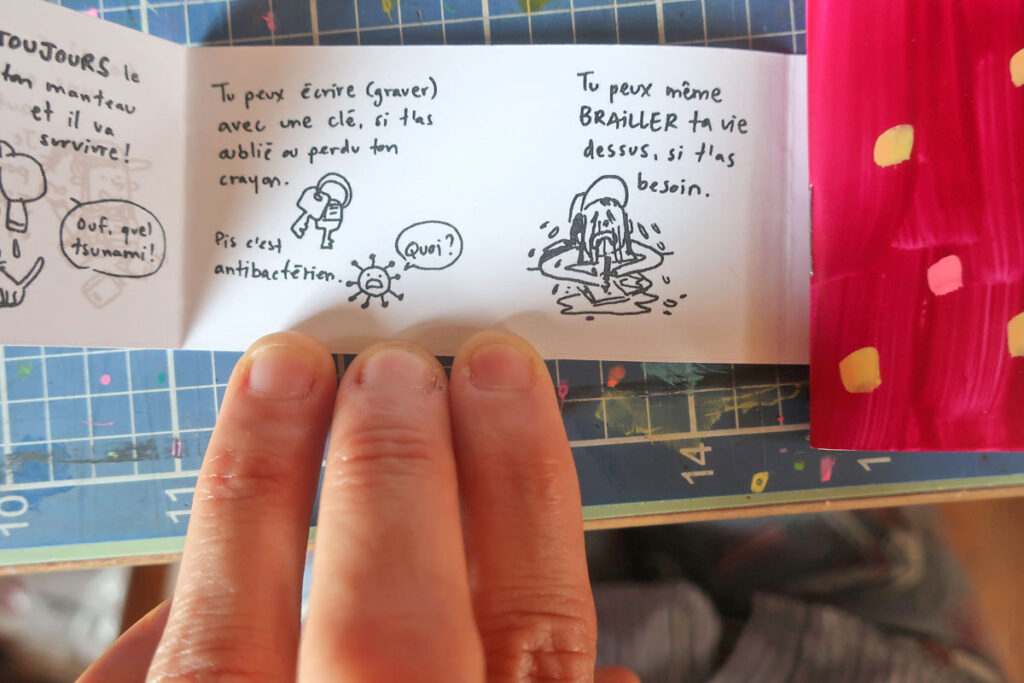 TOUJOURS le
ton manteau
et il va
survivre!
Ouf, quel
tsunami!
Tu peux écrire (graver)
avec une clé, si t'as
oublié ou perdu ton
crayon.
Pis c'est
antibactérien.
Quoi?
Tu peux même
BRAILLER ta vie
dessus, si t'as
besoin.
10
11
14